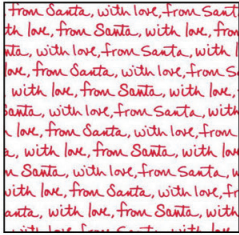 from Santa, with love, from Sant
th love, from Santa, with love, from
nta, with love, from Santa, with l
love, from Santa, with love, from S
with love, from Santa, with love,
Santa, with love, from Santa, with
h love, from Santa, with love, from
a, with love, from Santa, with lov
m Santa, with love, from Santa, w
with love, from Santa, with love, fr
anta, with love, from Santa, with
with love, from Santa, with love